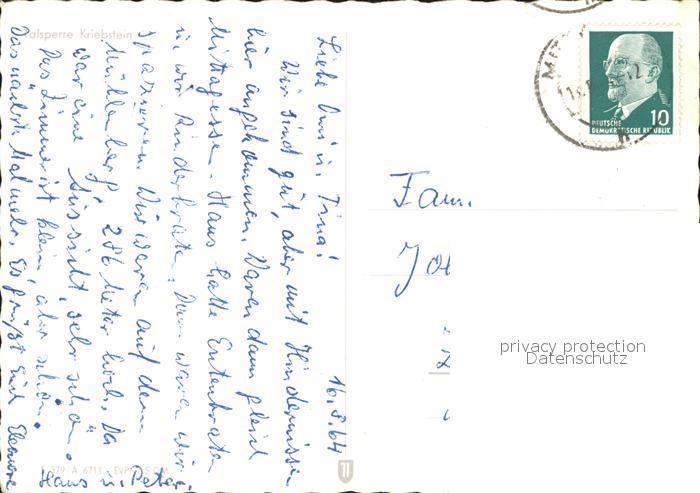 Talsperre Kriebstein
16.8.64
Liebe Omi u. Tina!
Wir sind gut, aber mit Hindernissen
hier angekommen. Waren dann gleich
Mittagessen. Hans hatte Entenbraten
u. wir Rinderbraten. Dann waren wir
spazieren. Wir waren auf dem
286 Meter hoch. Da
war eine Aussicht, sehr schön.
Das Zimmer ist klein, aber schön.
Das nächste Mal mehr. Es grüßt Euch Eleonore
Hans u. Peter.
A 6711
DEUTSCHE
DEMOKRATISCHE REPUBLIK
10
Fam.
Jo
privacy protection
Datenschutz